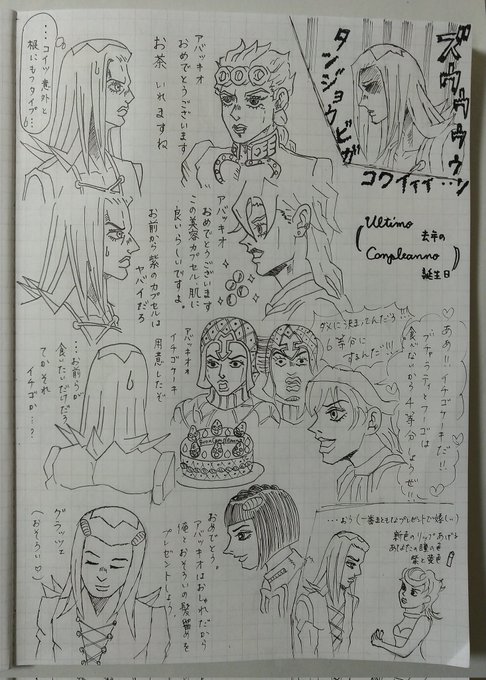 ズウウウウウン
タンジョウビガ
コワイィィ…ン
(Ultimo
Compleanno
去年の
誕生日)
アバッキオ
おめでとうございます
お茶 いれますね
…コイツ意外と
根にもつタイプ…
アバッキオ
おめでとうございます
この美容カプセル肌に
良いらしいですよ。
お前から紫のカプセルは
ヤバイだろ
あぁ!!イチゴケーキだ!!
ブチャラティとフーゴは
食べないから4等分しようぜ!!
ダメに決まってんだろ!!
6等分に
するんだ!!!
アバッキオ
イチゴケーキ
用意したぞ
Buon Compleanno
…お前らが
食べたいだけだろ
てかそれ
イチゴか…?
おめでとう。
アバッキオはおしゃれだから
俺とおそろいの髪留めを
プレゼントしよう。
グラッツェ
(おそろい♡)
…おう(一番まともなプレゼントで嬉しい)
新色のリップあげる
あなたの瞳の色
紫と黄色